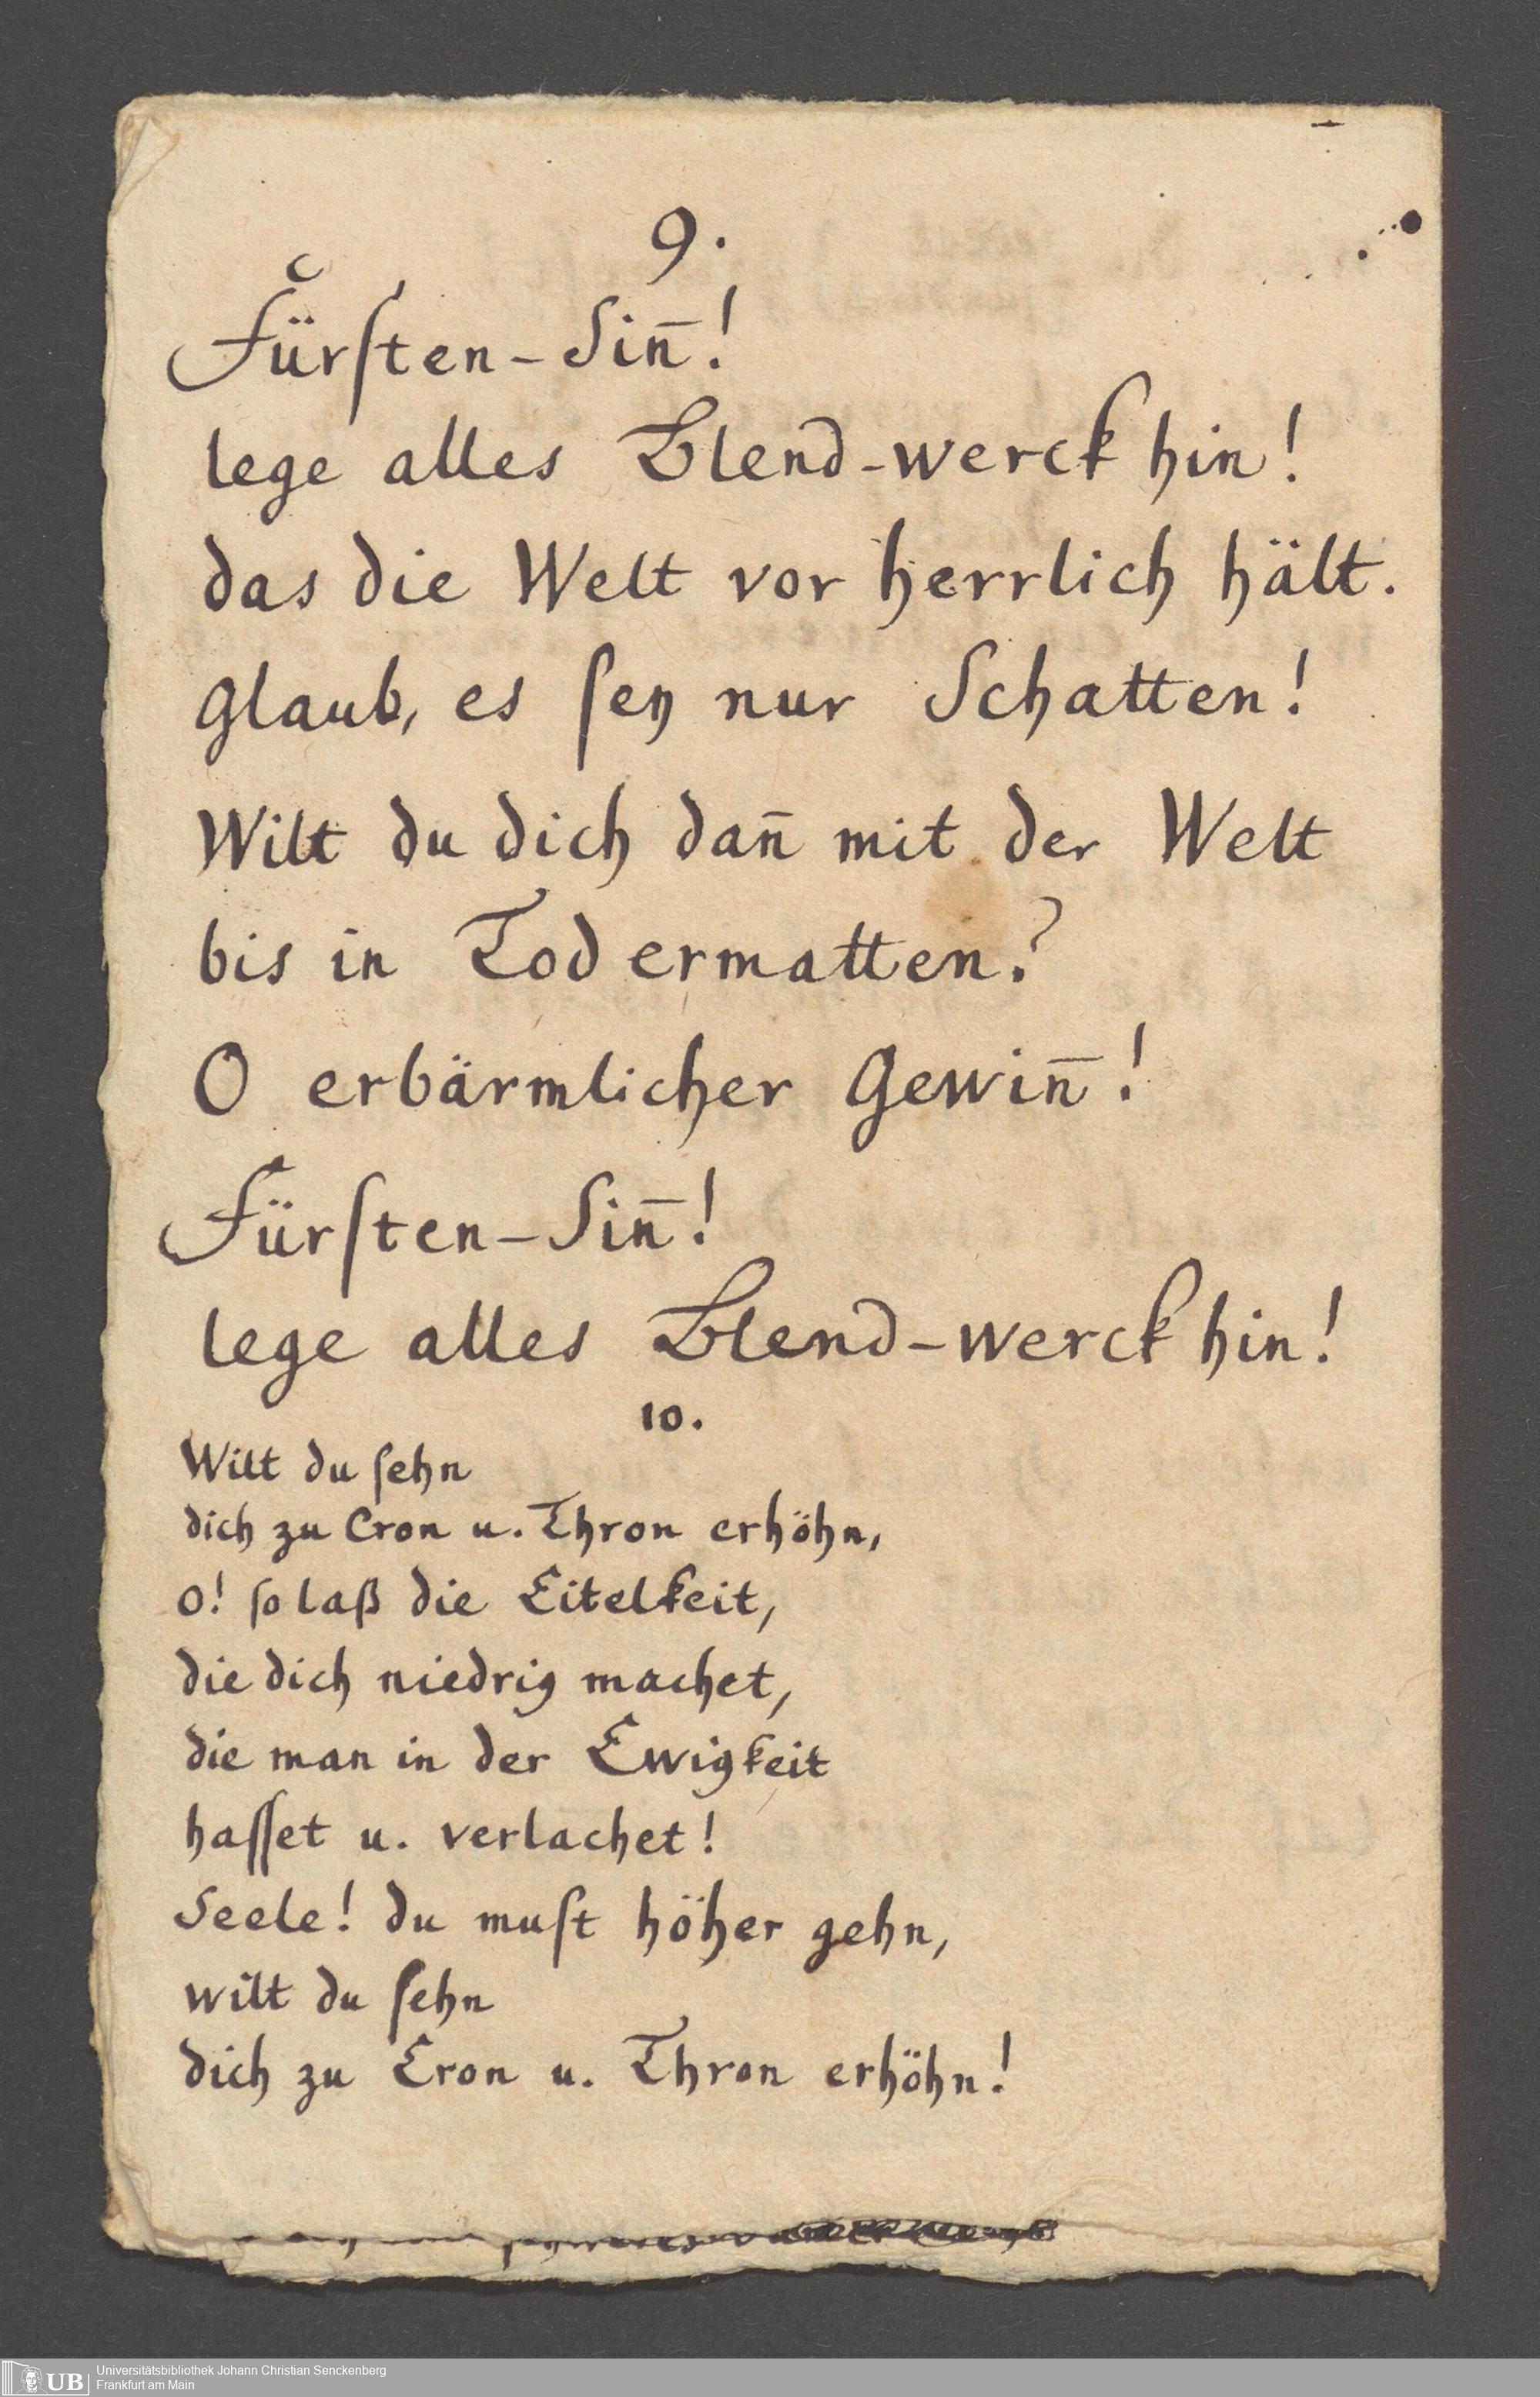 9.
Fürſten-Sin̄!
lege alles Blend-werck hin!
das die Welt vor herrlich hält.
Glaub, es ſey nur Schatten!
Wilt du dich dan̄ mit der Welt
bis in Tod ermatten?
O erbärmlicher Gewin̄!
Fürſten-Sin̄!
lege alles Blend-werck hin!
10.
Wilt du ſehn
dich zu Cron u. Thron erhöhn,
O! ſo laß die Eitelkeit,
die dich niedrig machet,
die man in der Ewigkeit
haſſet u. verlachet!
Seele! du muſt höher gehn,
wilt du ſehn
dich zu Cron u. Thron erhöhn!
UB
Universitätsbibliothek Johann Christian Senckenberg
Frankfurt am Main